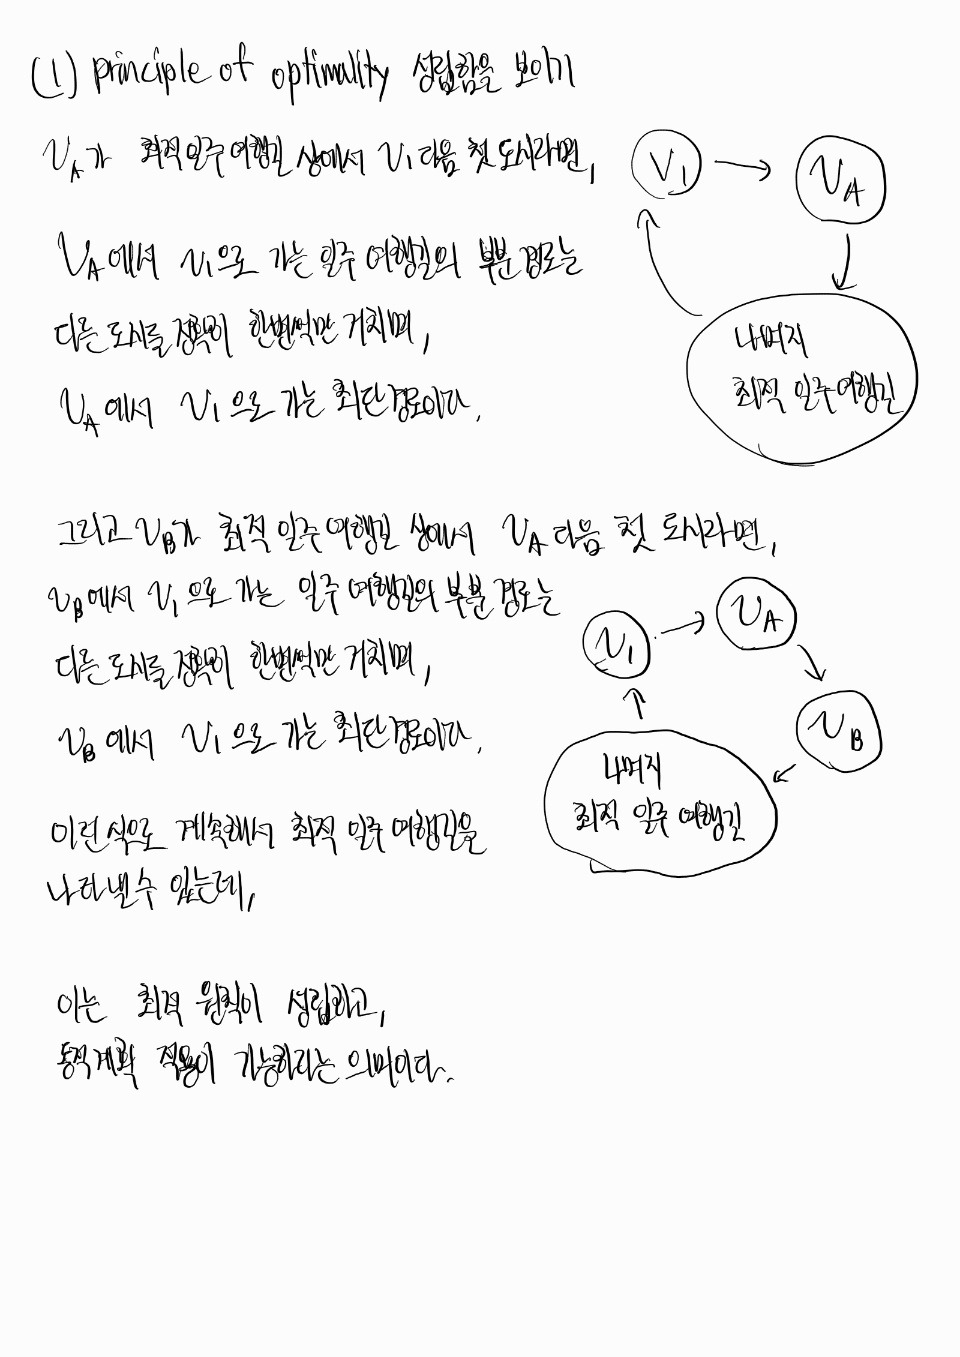 (1) principle of optimality 성립함을 보이기
V_A가 최적일주여행길 상에서 V_1 다음 첫 도시라면,
V_1
V_A
V_A에서 V_1으로 가는 일주 여행길의 부분 경로는
다른 도시를 정확히 한번씩만 거치며,
V_A에서 V_1으로 가는 최단경로이다.
나머지
최적 일주여행길
그리고 V_B가 최적 일주 여행길 상에서 V_A 다음 첫 도시라면,
V_B에서 V_1으로 가는 일주 여행길의 부분 경로는
다른 도시를 정확히 한번씩만 거치며,
V_B에서 V_1으로 가는 최단경로이다.
V_1
V_A
V_B
나머지
최적 일주 여행길
이런 식으로 계속해서 최적 일주 여행길을
나타낼 수 있는데,
이는 최적 원칙이 성립하고,
동적계획 적용이 가능하다는 의미이다.